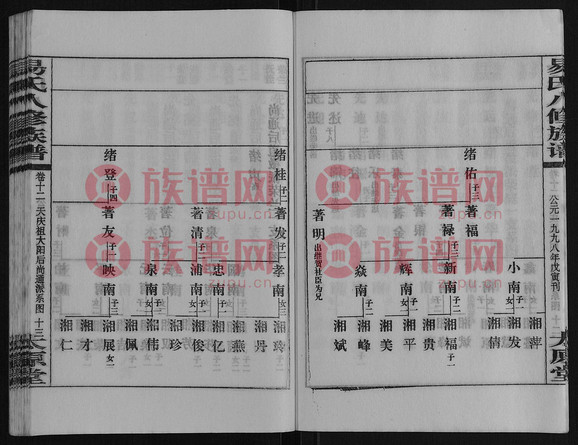 易氏八修族谱
公元一九九八年戊寅刊
太原堂
绪佑 子三
著福
著禄 子三
著明 出继贺社臣为兄
小南 子二
新南 子二
辉南
焱南
湘萍
湘发
湘倩
湘福 子一
湘贵
湘平
湘美
湘峰
湘斌
绪桂 子二
绪登 子四
著发
著清 子一
著友 子一
孝南
忠南
浦南
泉南
映南
湘玲
湘丹
湘燕
湘亿
湘俊
湘珍
湘伟
湘佩
湘展
湘才
湘仁
易氏八修族谱
卷十二 天庆祖大阳后尚通派系图
十三
太原堂
族谱网
族谱网
族谱网
族谱网